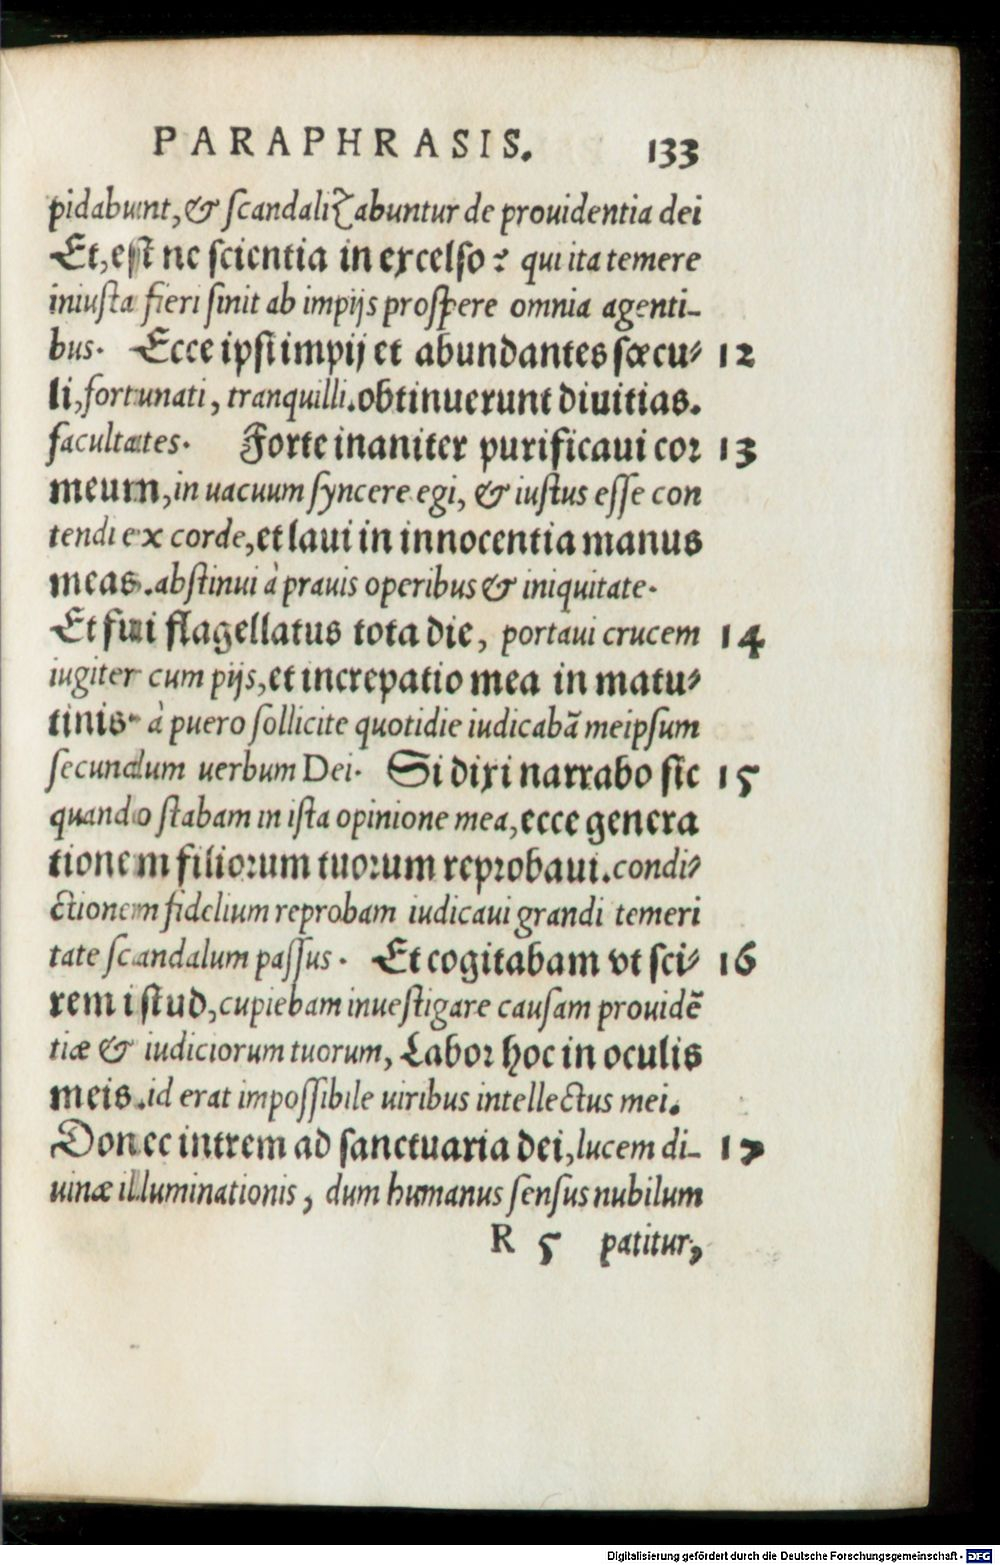 PARAPHRASIS. 133
pidabunt, & ſcandalizabuntur de prouidentia dei
Et, eſt ne ſcientia in excelſo? qui ita temere
iniuſta fieri ſinit ab impijs proſpere omnia agenti-
bus. Ecce ipſi impij et abundantes ſæcu- 12
li, fortunati, tranquilli. obtinuerunt diuitias.
facultates. Forte inaniter purificaui cor 13
meum, in uacuum ſyncere egi, & iuſtus eſſe con
tendi ex corde, et laui in innocentia manus
meas. abſtinui à prauis operibus & iniquitate.
Et fui flagellatus tota die, portaui crucem 14
iugiter cum pijs, et increpatio mea in matu-
tinis. à puero ſollicite quotidie iudicabā meipſum
ſecundum uerbum Dei. Si dixi narrabo ſic 15
quando ſtabam in iſta opinione mea, ecce genera
tionem filiorum tuorum reprobaui. condi-
ctionem fidelium reprobam iudicaui grandi temeri
tate ſcandalum paſſus. Et cogitabam vt ſci- 16
rem iſtud, cupiebam inueſtigare cauſam prouidē
tiæ & iudiciorum tuorum, Labor hoc in oculis
meis. id erat impoſſibile uiribus intellectus mei.
Donec intrem ad ſanctuaria dei, lucem di- 17
uinæ illuminationis, dum humanus ſenſus nubilum
R 5 patitur,
Digitalisierung gefördert durch die Deutsche Forschungsgemeinschaft - DFG